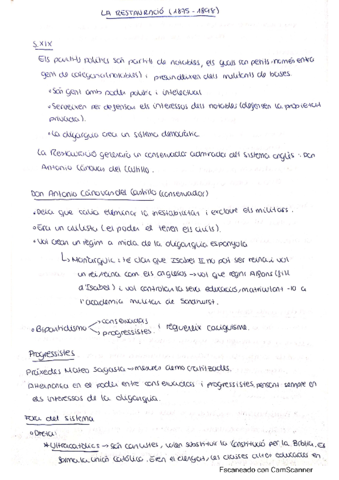 LA RESTAURACIÓ (1875-1898)
S.XIX
Els partits polítics són partits de notables, els quals són petits només entre
gent de categoria (notables) i prescindeixen dels militants de bases.
• Són gent amb poder polític i intel·lectual
• Serveixen per defensar els interessos dels notables (defensen la propietat
privada).
• La oligarquia crea un sistema democràtic
La Restauració generarà un conservador admirador del sistema anglès: Don
Antonio Cánovas del Castillo.
Don Antonio Cánovas del Castillo (conservador)
• Deia que calia eliminar la inestabilitat i excloure els militars.
• Era un civilista (el poder el tenen els civils).
• Vol crear un règim a mida de la oligarquia espanyola
↳ Monàrquic: té clar que Isabel II no pot ser reina i vol
un sistema com els anglesos → vol que regni Alfons (fill
d'Isabel) i vol controlar la seva educació, matriculant-lo a
l'acadèmia militar de Sandhurst.
• Bipartidisme conservadors
progressistes i requereix caciquisme.
Progressistes
Práxedes Mateo Sagasta → maneres centralitzades.
Alternança en el poder entre conservadors i progressistes, pensant sempre en
els interessos de la oligarquia.
Fora del sistema
• Dreta:
Ultracatòlics → són carlistes, volen substituir la Constitució per la Bíblia, és
catòlica. Eren el clergat, les classes altes educades en
Escaneado con CamScanner